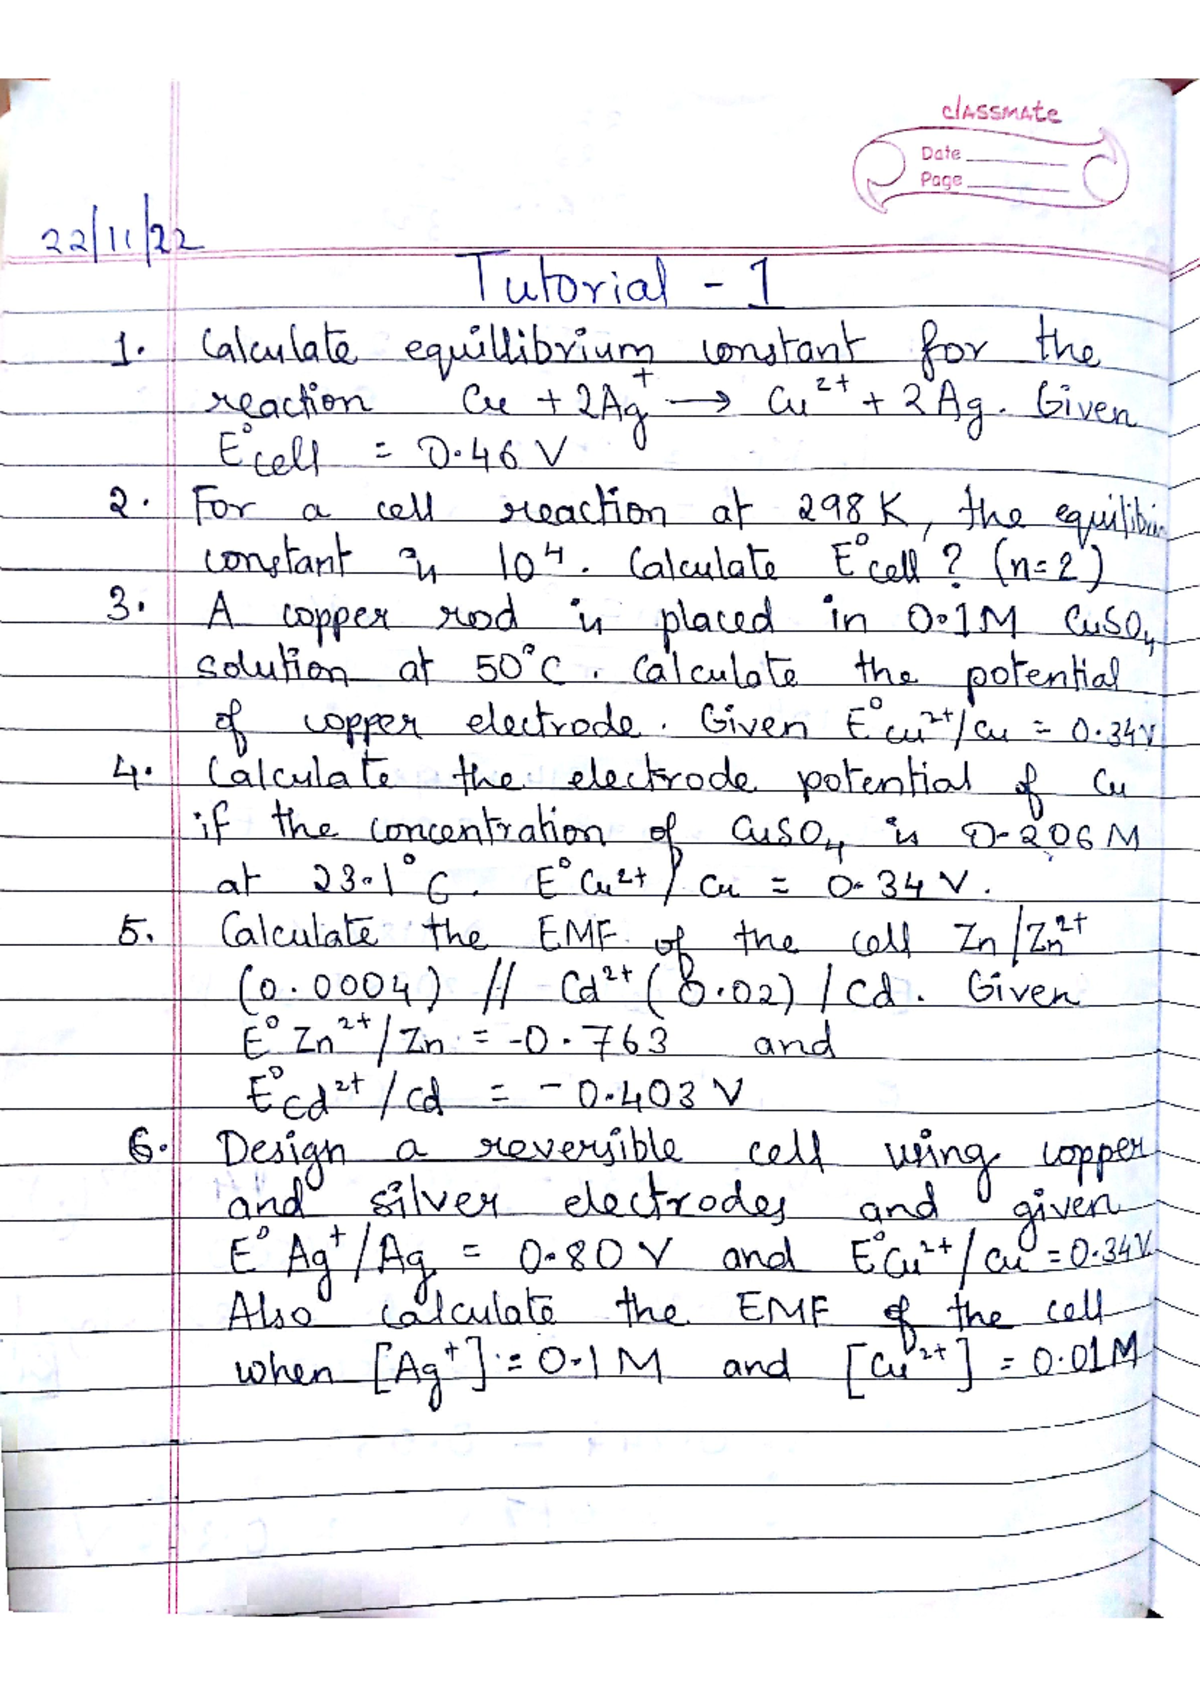 classmate
Date
Page
22/11/22
Tutorial - 1
1. Calculate equillibrium constant for the
reaction Cu + 2Ag⁺ → Cu²⁺ + 2Ag. Given
E°cell = 0.46 V
2. For a cell reaction at 298 K, the equilibrium
constant is 10⁴. Calculate E°cell? (n=2)
3. A copper rod is placed in 0.1M CuSO₄
solution at 50°C. Calculate the potential
of copper electrode. Given E°Cu²⁺/Cu = 0.34V
4. Calculate the electrode potential of Cu
if the concentration of CuSO₄ is 0.206 M
at 23.1°C. E°Cu²⁺/Cu = 0.34 V.
5. Calculate the EMF of the cell Zn/Zn²⁺
(0.0004) // Cd²⁺ (0.02) / Cd. Given
E°Zn²⁺/Zn = -0.763 and
E°Cd²⁺/Cd = -0.403 V
6. Design a reversible cell using copper
and silver electrodes and given
E°Ag⁺/Ag = 0.80 V and E°Cu²⁺/Cu = 0.34V.
Also calculate the EMF of the cell
when [Ag⁺] = 0.1 M and [Cu²⁺] = 0.01M